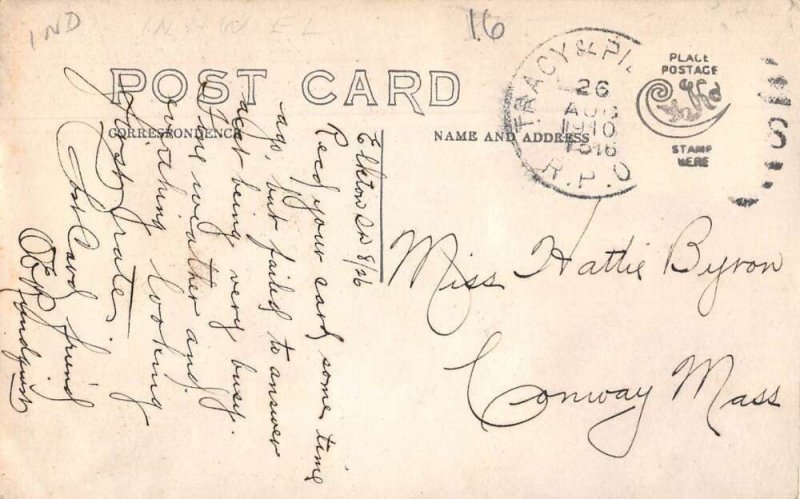 IND
16
POST CARD
CORRESPONDENCE
NAME AND ADDRESS
TRACY & PI
26
AUG
1910
R.P.O.
PLACE
POSTAGE
STAMP
HERE
Elkton SD 8/26
Recd your card some time
ago, but failed to answer
acct being very busy.
Fine weather and
everything looking
first rate
Post Card friend
Miss Hattie Byron
Conway Mass